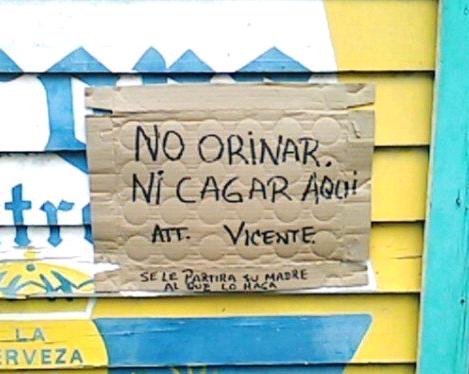 NO ORINAR.
NI CAGAR AQUI
ATT. VICENTE.
SE LE PARTIRA SU MADRE
AL QUE LO HAGA
LA
ERVEZA